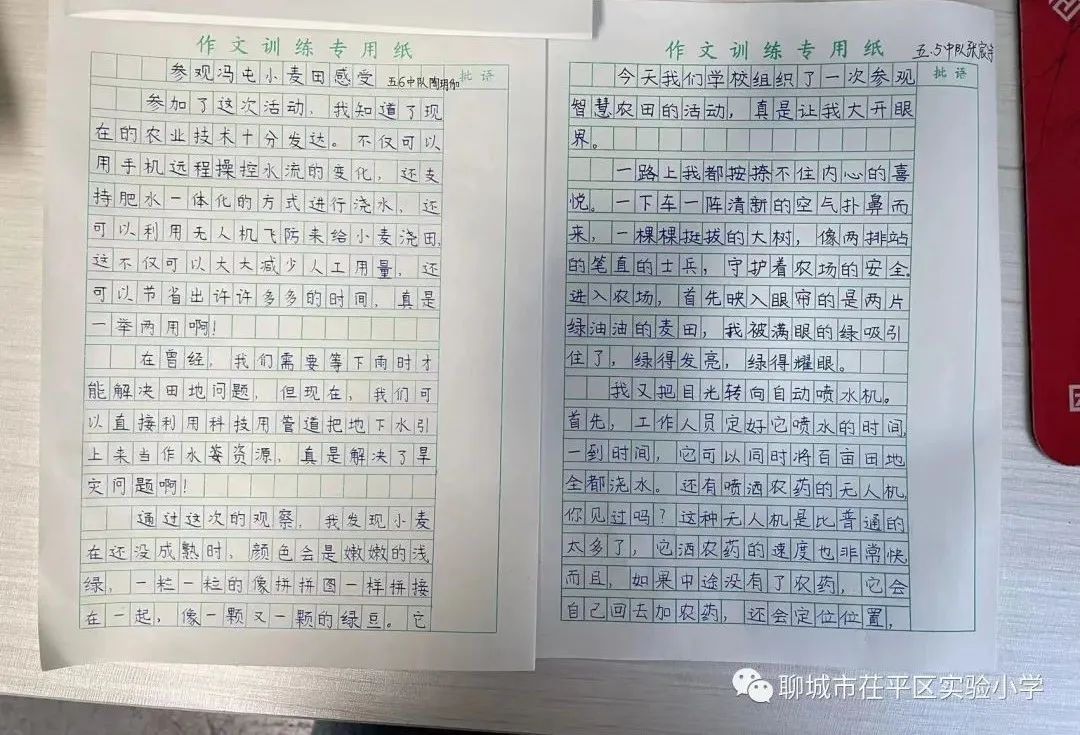 作文训练专用纸
参观冯屯小麦田感受 五.6中队
批语
参加了这次活动，我知道了现
在的农业技术十分发达。不仅可以
用手机远程操控水流的变化，还支
持肥水一体化的方式进行浇水，还
可以利用无人机飞防来给小麦浇田，
这不仅可以大大减少人工用量，还
可以节省出许许多多的时间，真是
一举两用啊！
在曾经，我们需要等下雨时才
能解决田地问题，但现在，我们可
以直接利用科技用管道把地下水引
上来当作水资源，真是解决了旱
灾问题啊！
通过这次的观察，我发现小麦
在还没成熟时，颜色会是嫩嫩的浅
绿，一粒一粒的像拼拼图一样拼接
在一起，像一颗又一颗的绿豆。它
作文训练专用纸
五.5中队张宸
批语
今天我们学校组织了一次参观
智慧农田的活动，真是让我大开眼
界。
一路上我都按捺不住内心的喜
悦。一下车一阵清新的空气扑鼻而
来，一棵棵挺拔的大树，像两排站
的笔直的士兵，守护着农场的安全。
进入农场，首先映入眼帘的是两片
绿油油的麦田，我被满眼的绿吸引
住了，绿得发亮，绿得耀眼。
我又把目光转向自动喷水机。
首先，工作人员定好它喷水的时间，
一到时间，它可以同时将百亩田地
全都浇水。还有喷洒农药的无人机，
你见过吗？这种无人机是比普通的
太多了，它洒农药的速度也非常快
而且，如果中途没有了农药，它会
自己回去加农药，还会定位位置，
聊城市茌平区实验小学